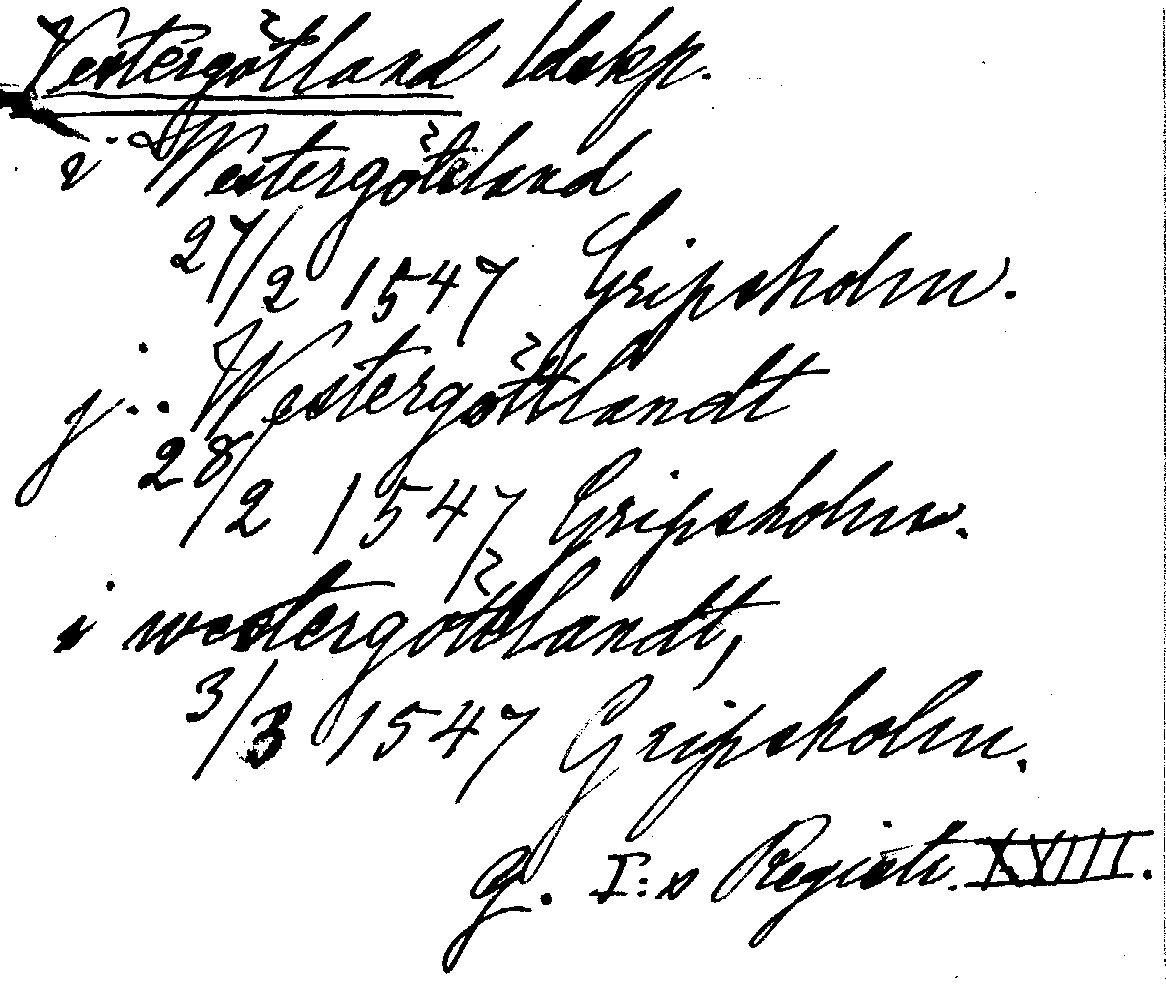 Vestergötland ldskp.
i Westergötland
27/2 1547 Gripsholm.
j.. Westergöttlandt
28/2 1547 Gripsholm.
i westergöttlandt,
3/3 1547 Gripsholm.
G. I:s Registr. XVIII.